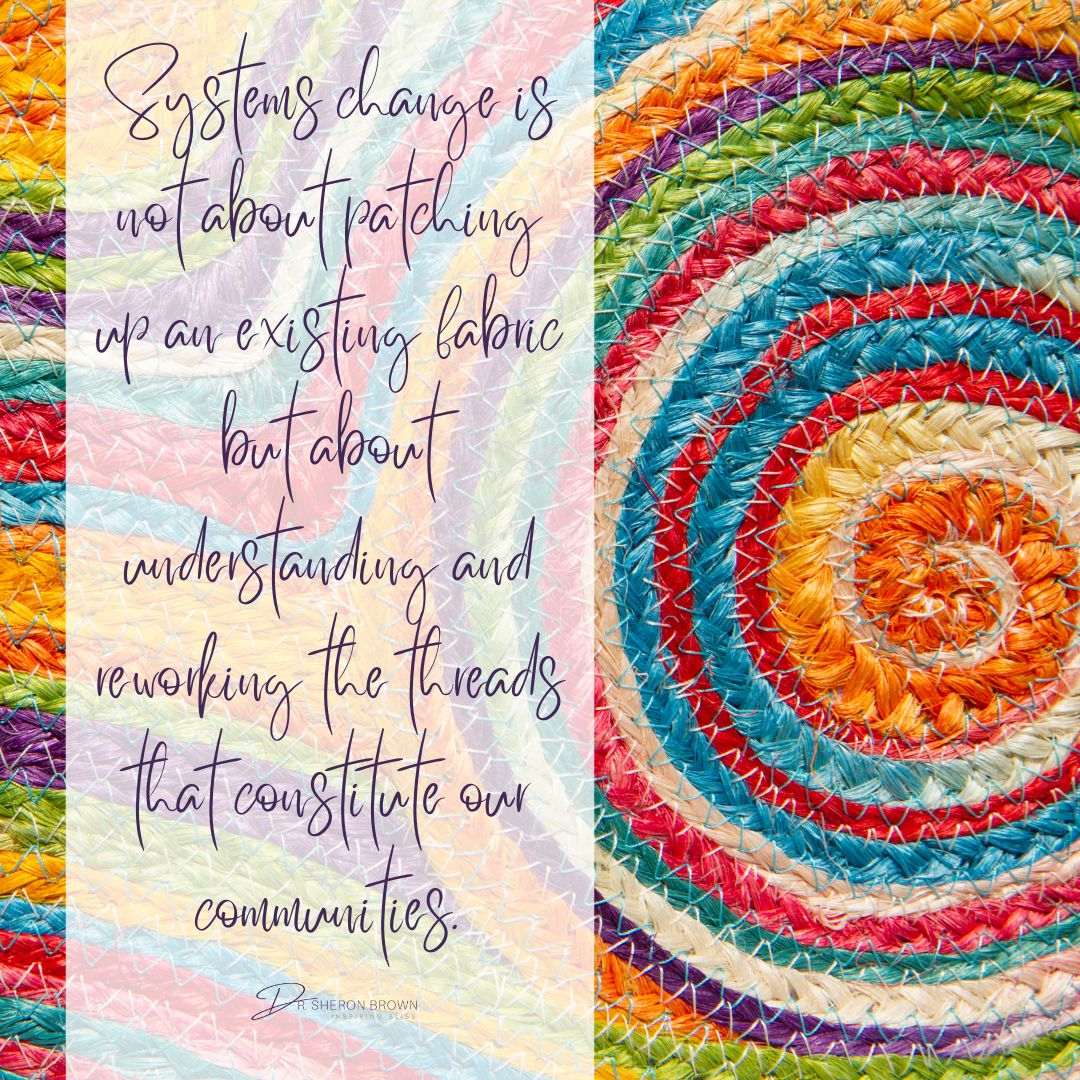 Systems change is
not about patching
up an existing fabric
but about
understanding and
reworking the threads
that constitute our
communities.
DR. SHERON BROWN
INSPIRING BLISS